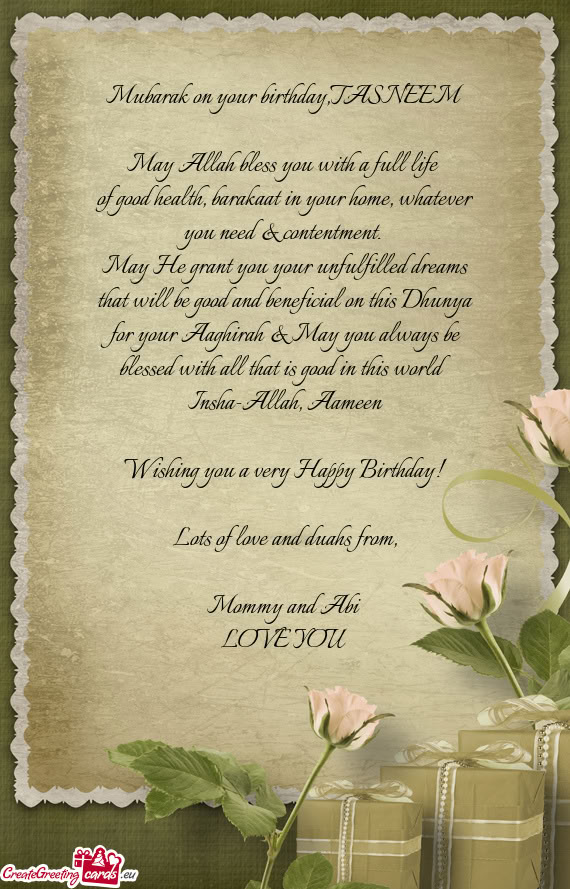 Mubarak on your birthday,TASNEEM
May Allah bless you with a full life
of good health, barakaat in your home, whatever
you need & contentment.
May He grant you your unfulfilled dreams
that will be good and beneficial on this Dhunya
for your Aaghirah & May you always be
blessed with all that is good in this world
Insha-Allah, Aameen
Wishing you a very Happy Birthday!
Lots of love and duahs from,
Mommy and Abi
LOVE YOU
CreateGreeting cards .eu